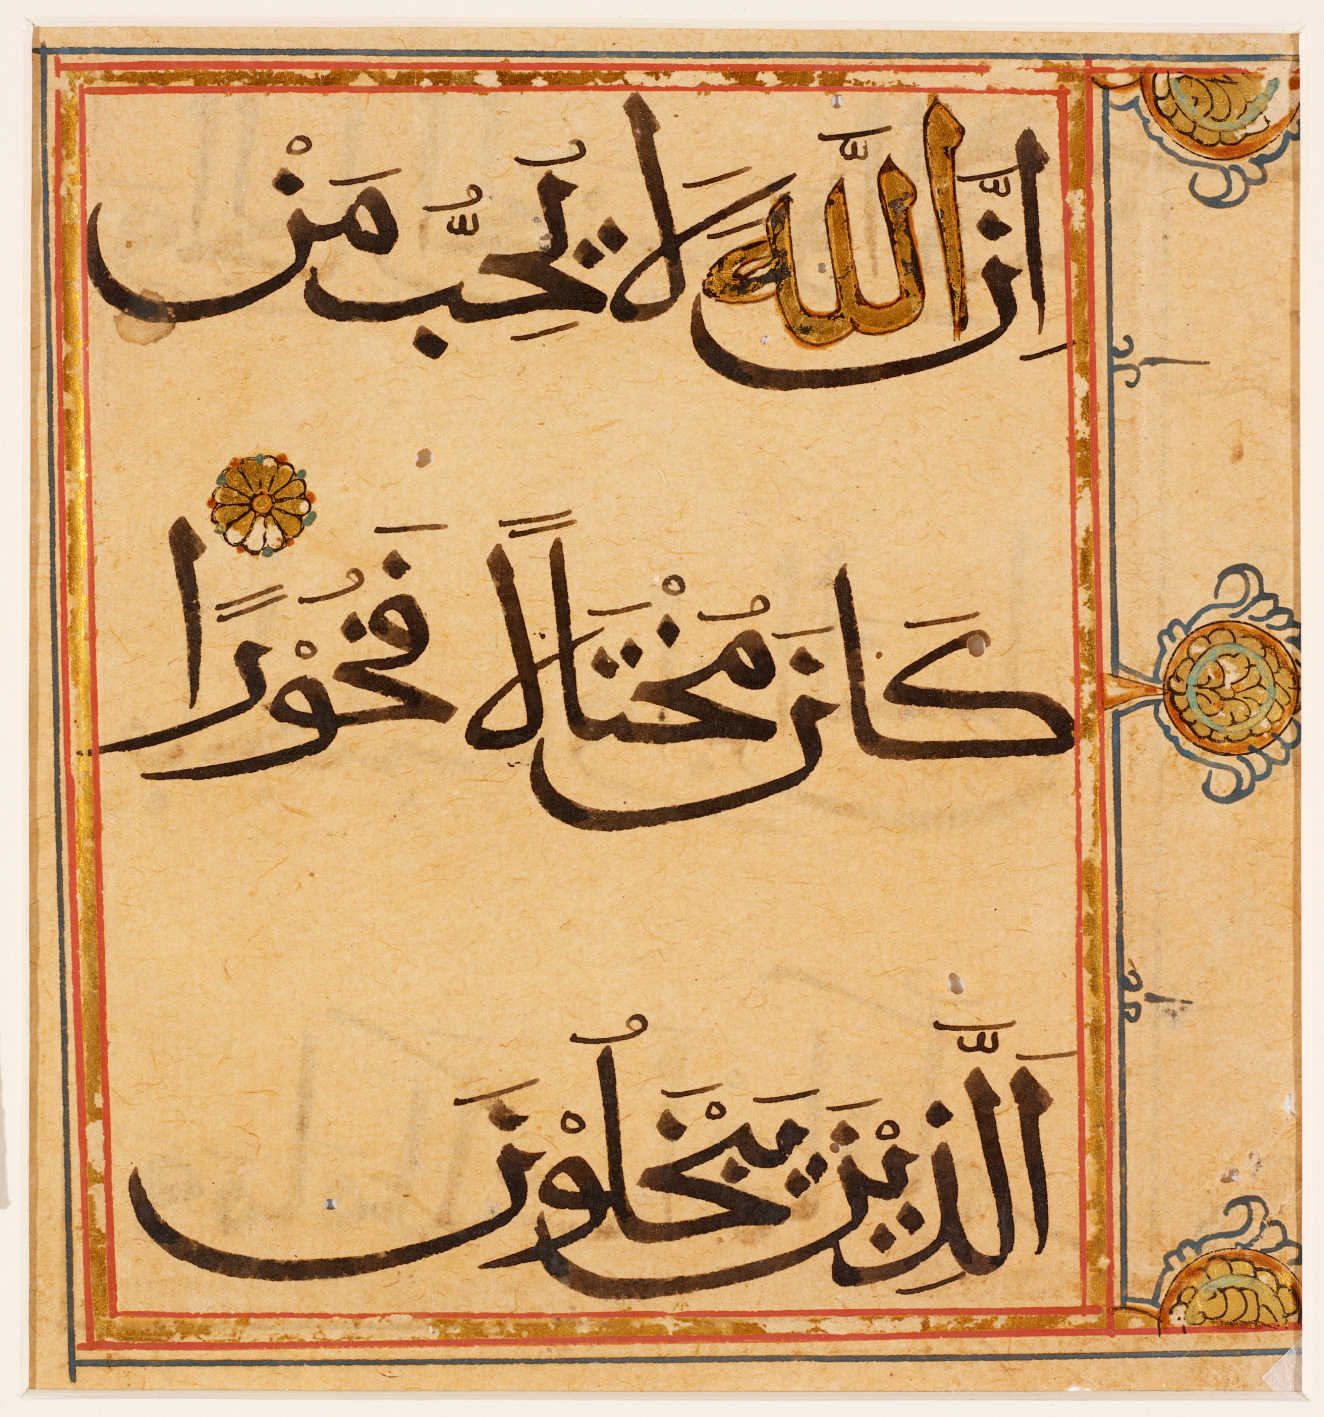 إِنَّ اللَّهَ لَا يُحِبُّ مَنْ
كَانَ مُخْتَالًا فَخُوْرًا
اَلَّذِيْنَ يَبْخَلُوْنَ